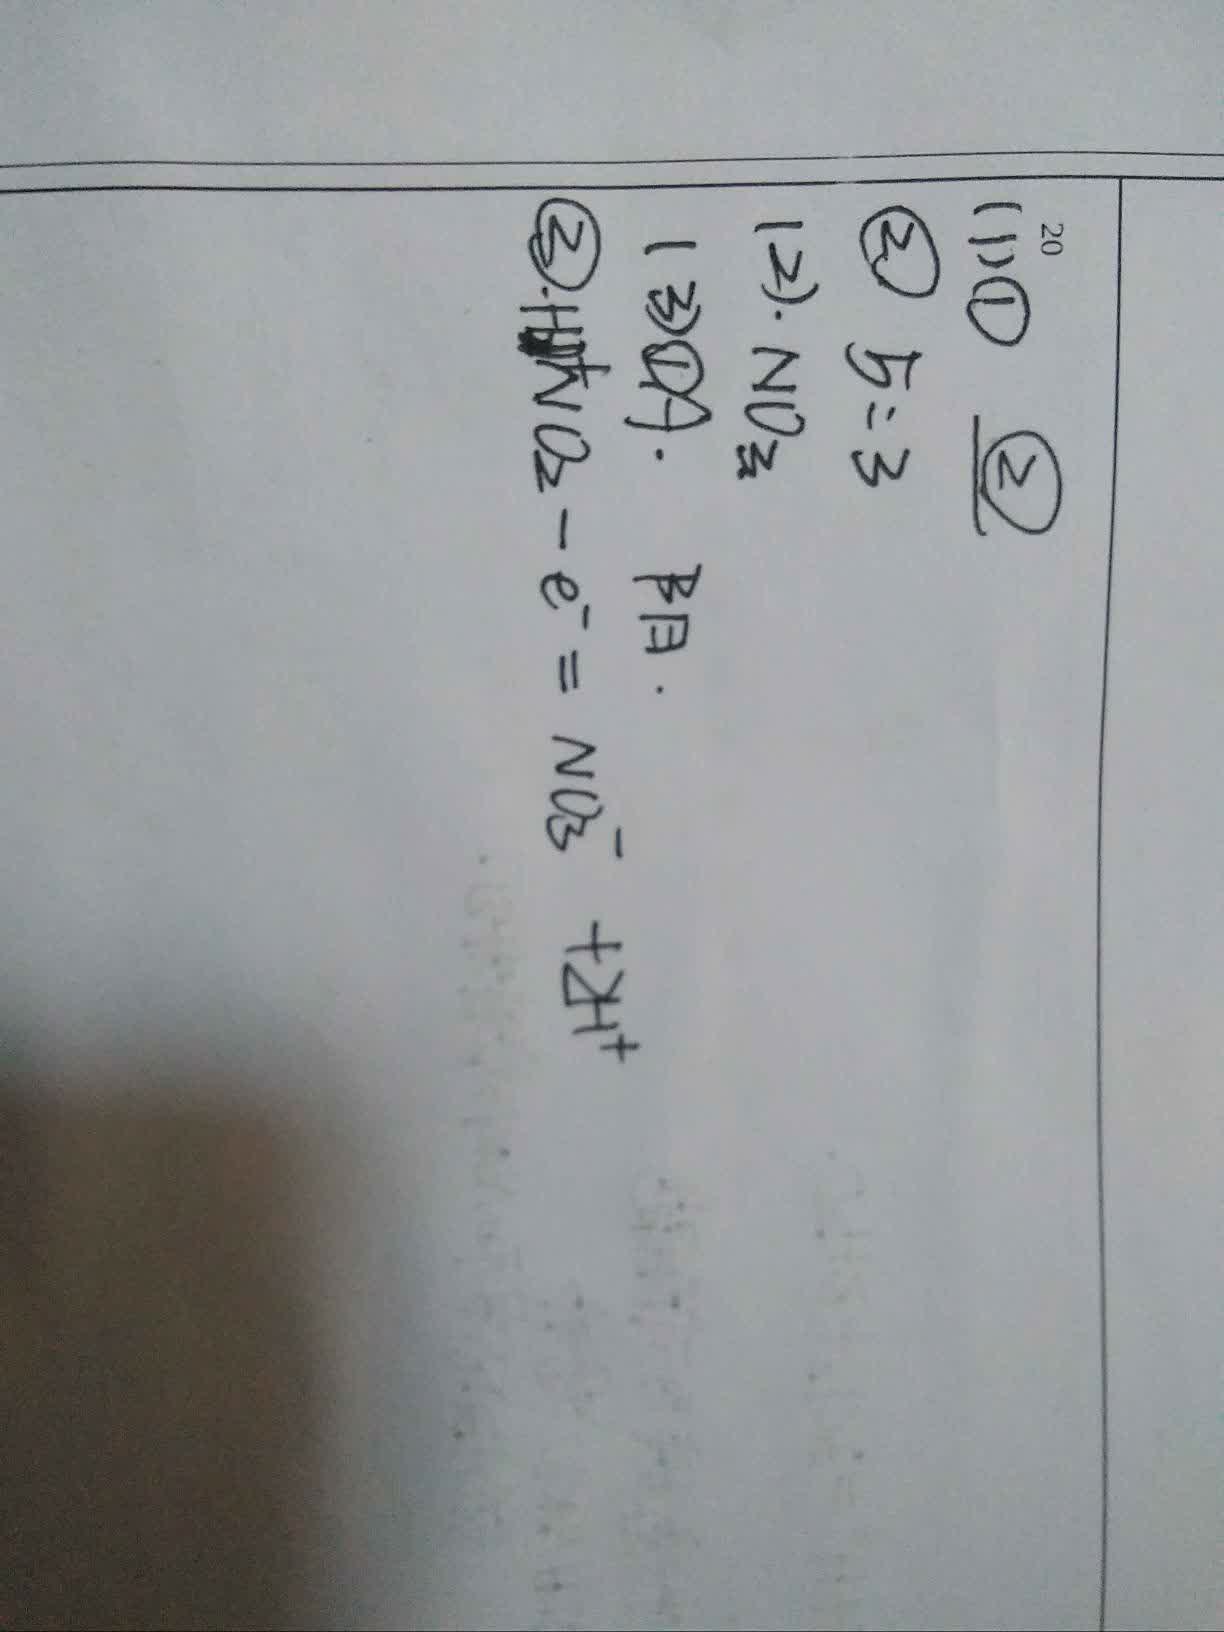 20
(1)① ②
② 5=3
(2). NO₃
(3)①A. 阳.
②. H₂NO₂ - e⁻ = NO₃⁻ + 2H⁺